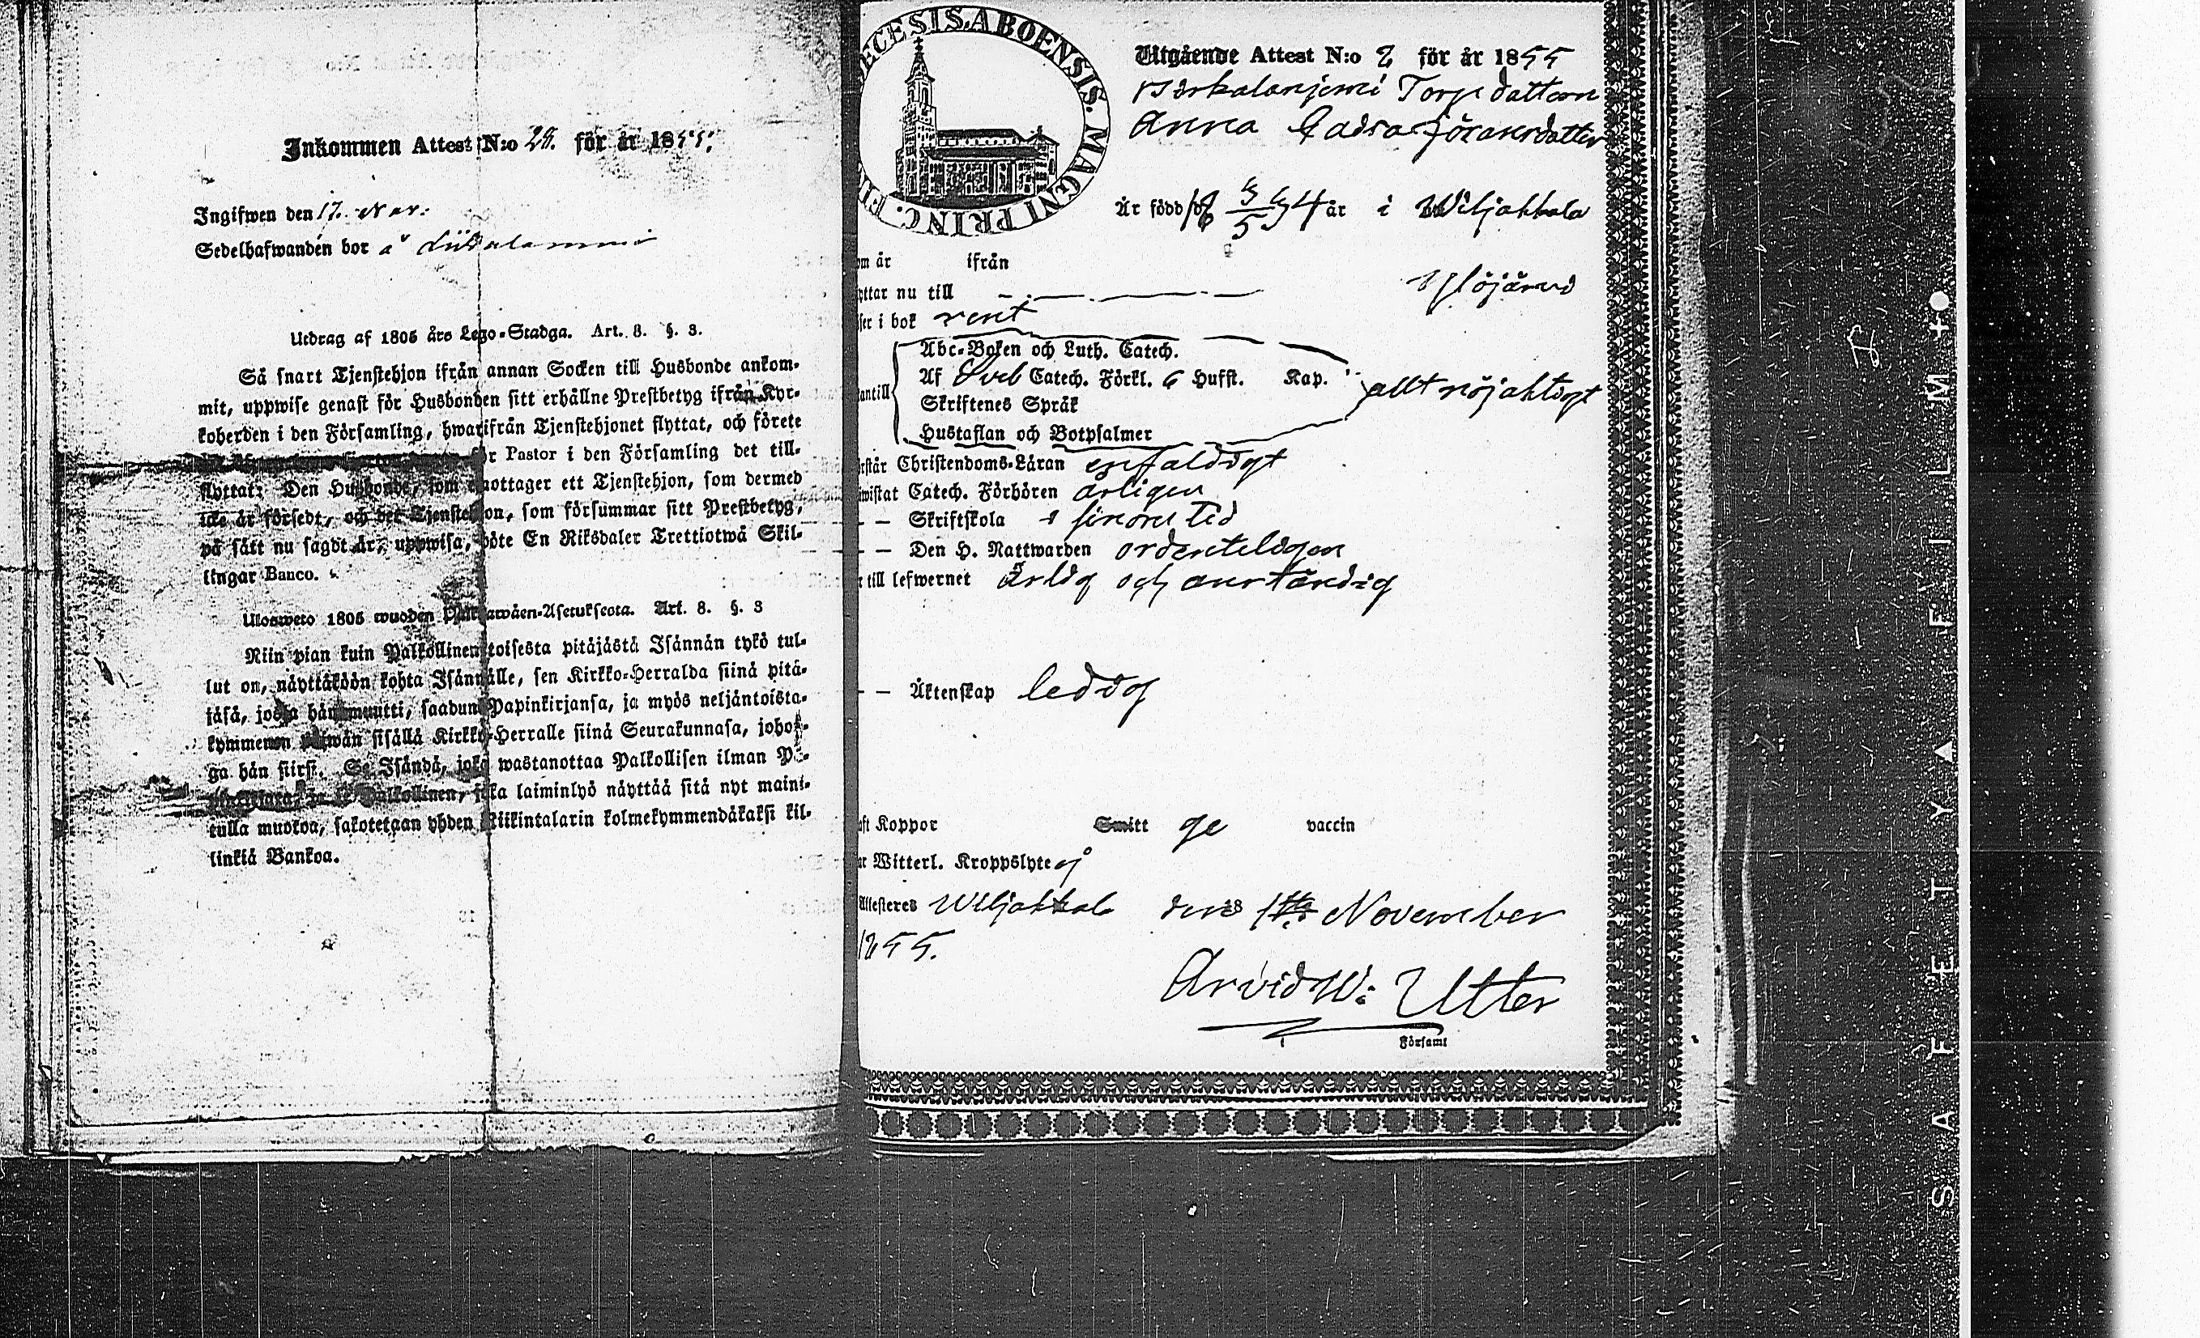 Inkommen Attest N:o 28. för år 1855.
Ingifwen den 17. Nov.
Sedelhafwanden bor å
Utdrag af 1805 års Lego-Stadga. Art. 8. §. 3.
Så snart Tjenstehjon ifrån annan Socken till Husbonde ankom-
mit, uppwise genast för Husbonden sitt erhållne Prestbetyg ifrån Kyr-
koherden i den Församling, hwarifrån Tjenstehjonet flyttat, och förete
för Pastor i den Församling det till-
flyttat; Den Husbonde, som emottager ett Tjenstehjon, som dermed
icke är försedt, och det Tjenstehjon, som försummar sitt Prestbetyg,
på sätt nu sagdt är, uppwisa, böte En Riksdaler Trettiotwå Skil-
lingar Banco.
Ulosweto 1805 wuoden Palkkawäen-Asetuksesta. Art. 8. §. 3
Niin pian kuin Palkollinen toisesta pitäjästä Isännän tykö tul-
lut on, näyttäköön kohta Isännälle, sen Kirkko-Herralda siinä pitä-
jäsä, josta hän muutti, saadun Papinkirjansa, ja myös neljäntoista-
kymmenen päiwän sisällä Kirkko-Herralle siinä Seurakunnasa, johon-
ga hän siirsi. Se Isändä, joka wastanottaa Palkollisen ilman Pa-
pinkirjata, ja se Palkollinen, joka laiminlyö näyttää sitä nyt maini-
tulla muotoa, sakotetaan yhden Riikintalarin kolmekymmendäkaksi kil-
linkiä Bankoa.
ECESIS ABOENSIS. MAGNI PRINC. FI
Utgående Attest N:o 2 för år 1855
Torp dattern
Anna Cajsa Göransdatter
Är född 18 34 år i Wiljakkala
om är ifrån
yttar nu till Ylöjärvi
ser i bok rent
Abc-Boken och Luth. Catech.
Af Sveb Catech. Förkl. 6 Hufst. Kap.
antill allt nöjaktigt
Skriftenes Språk
Hustaflan och Botpsalmer
rstår Christendoms-Läran enfaldigt
wistat Catech. Förhören årligen
– – Skriftskola i sinom tid
– – Den H. Nattwarden ordenteligen
r till lefwernet ärlig och anständig
– – Äktenskap ledig
ft Koppor Smitt ge vaccin
ar Witterl. Kroppslyte ej
Attesteres Wiljakkala den November
1855.
Arvid W: Utter
Församl
SAFETY ▲ FILM